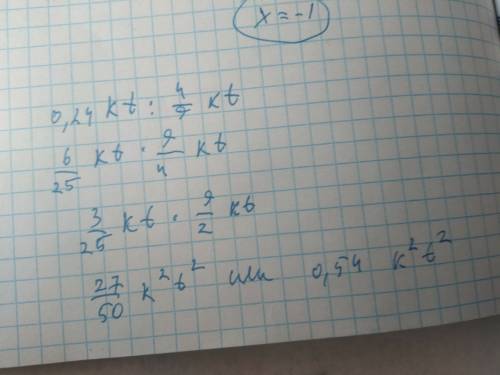 x = -1
0,24 kt : 4/9 kt
6/25 kt · 9/4 kt
3/25 kt · 9/2 kt
27/50 k² t² или 0,54 k² t²